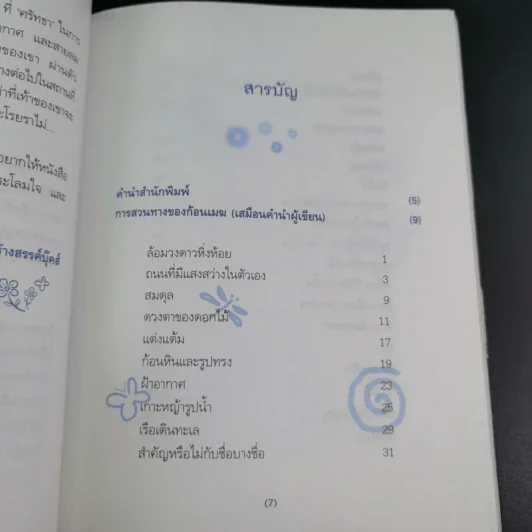 ที่ 'ศรัทธา' ในการ
กาศ และสายลม
ของเขา ผ่านตัว
างต่อไปในสถานที่
ที่เท้าของเขาจะ
ะโรยราไม่...
อยากให้หนังสือ
ะโลมใจ และ
้างสรรค์บุ๊คส์
สารบัญ
คำนำสำนักพิมพ์ (5)
การสวนทางของก้อนเมฆ (เสมือนคำนำผู้เขียน) (9)
ล้อมวงดาวหิ่งห้อย 1
ถนนที่มีแสงสว่างในตัวเอง 3
สมดุล 9
ดวงตาของดอกไม้ 11
แต่งแต้ม 17
ก้อนหินและรูปทรง 19
ฝ้าอากาศ 23
เกาะหญ้ารูปน้ำ 25
เรือเดินทะเล 29
สำคัญหรือไม่กับชื่อบางชื่อ 31
(7)